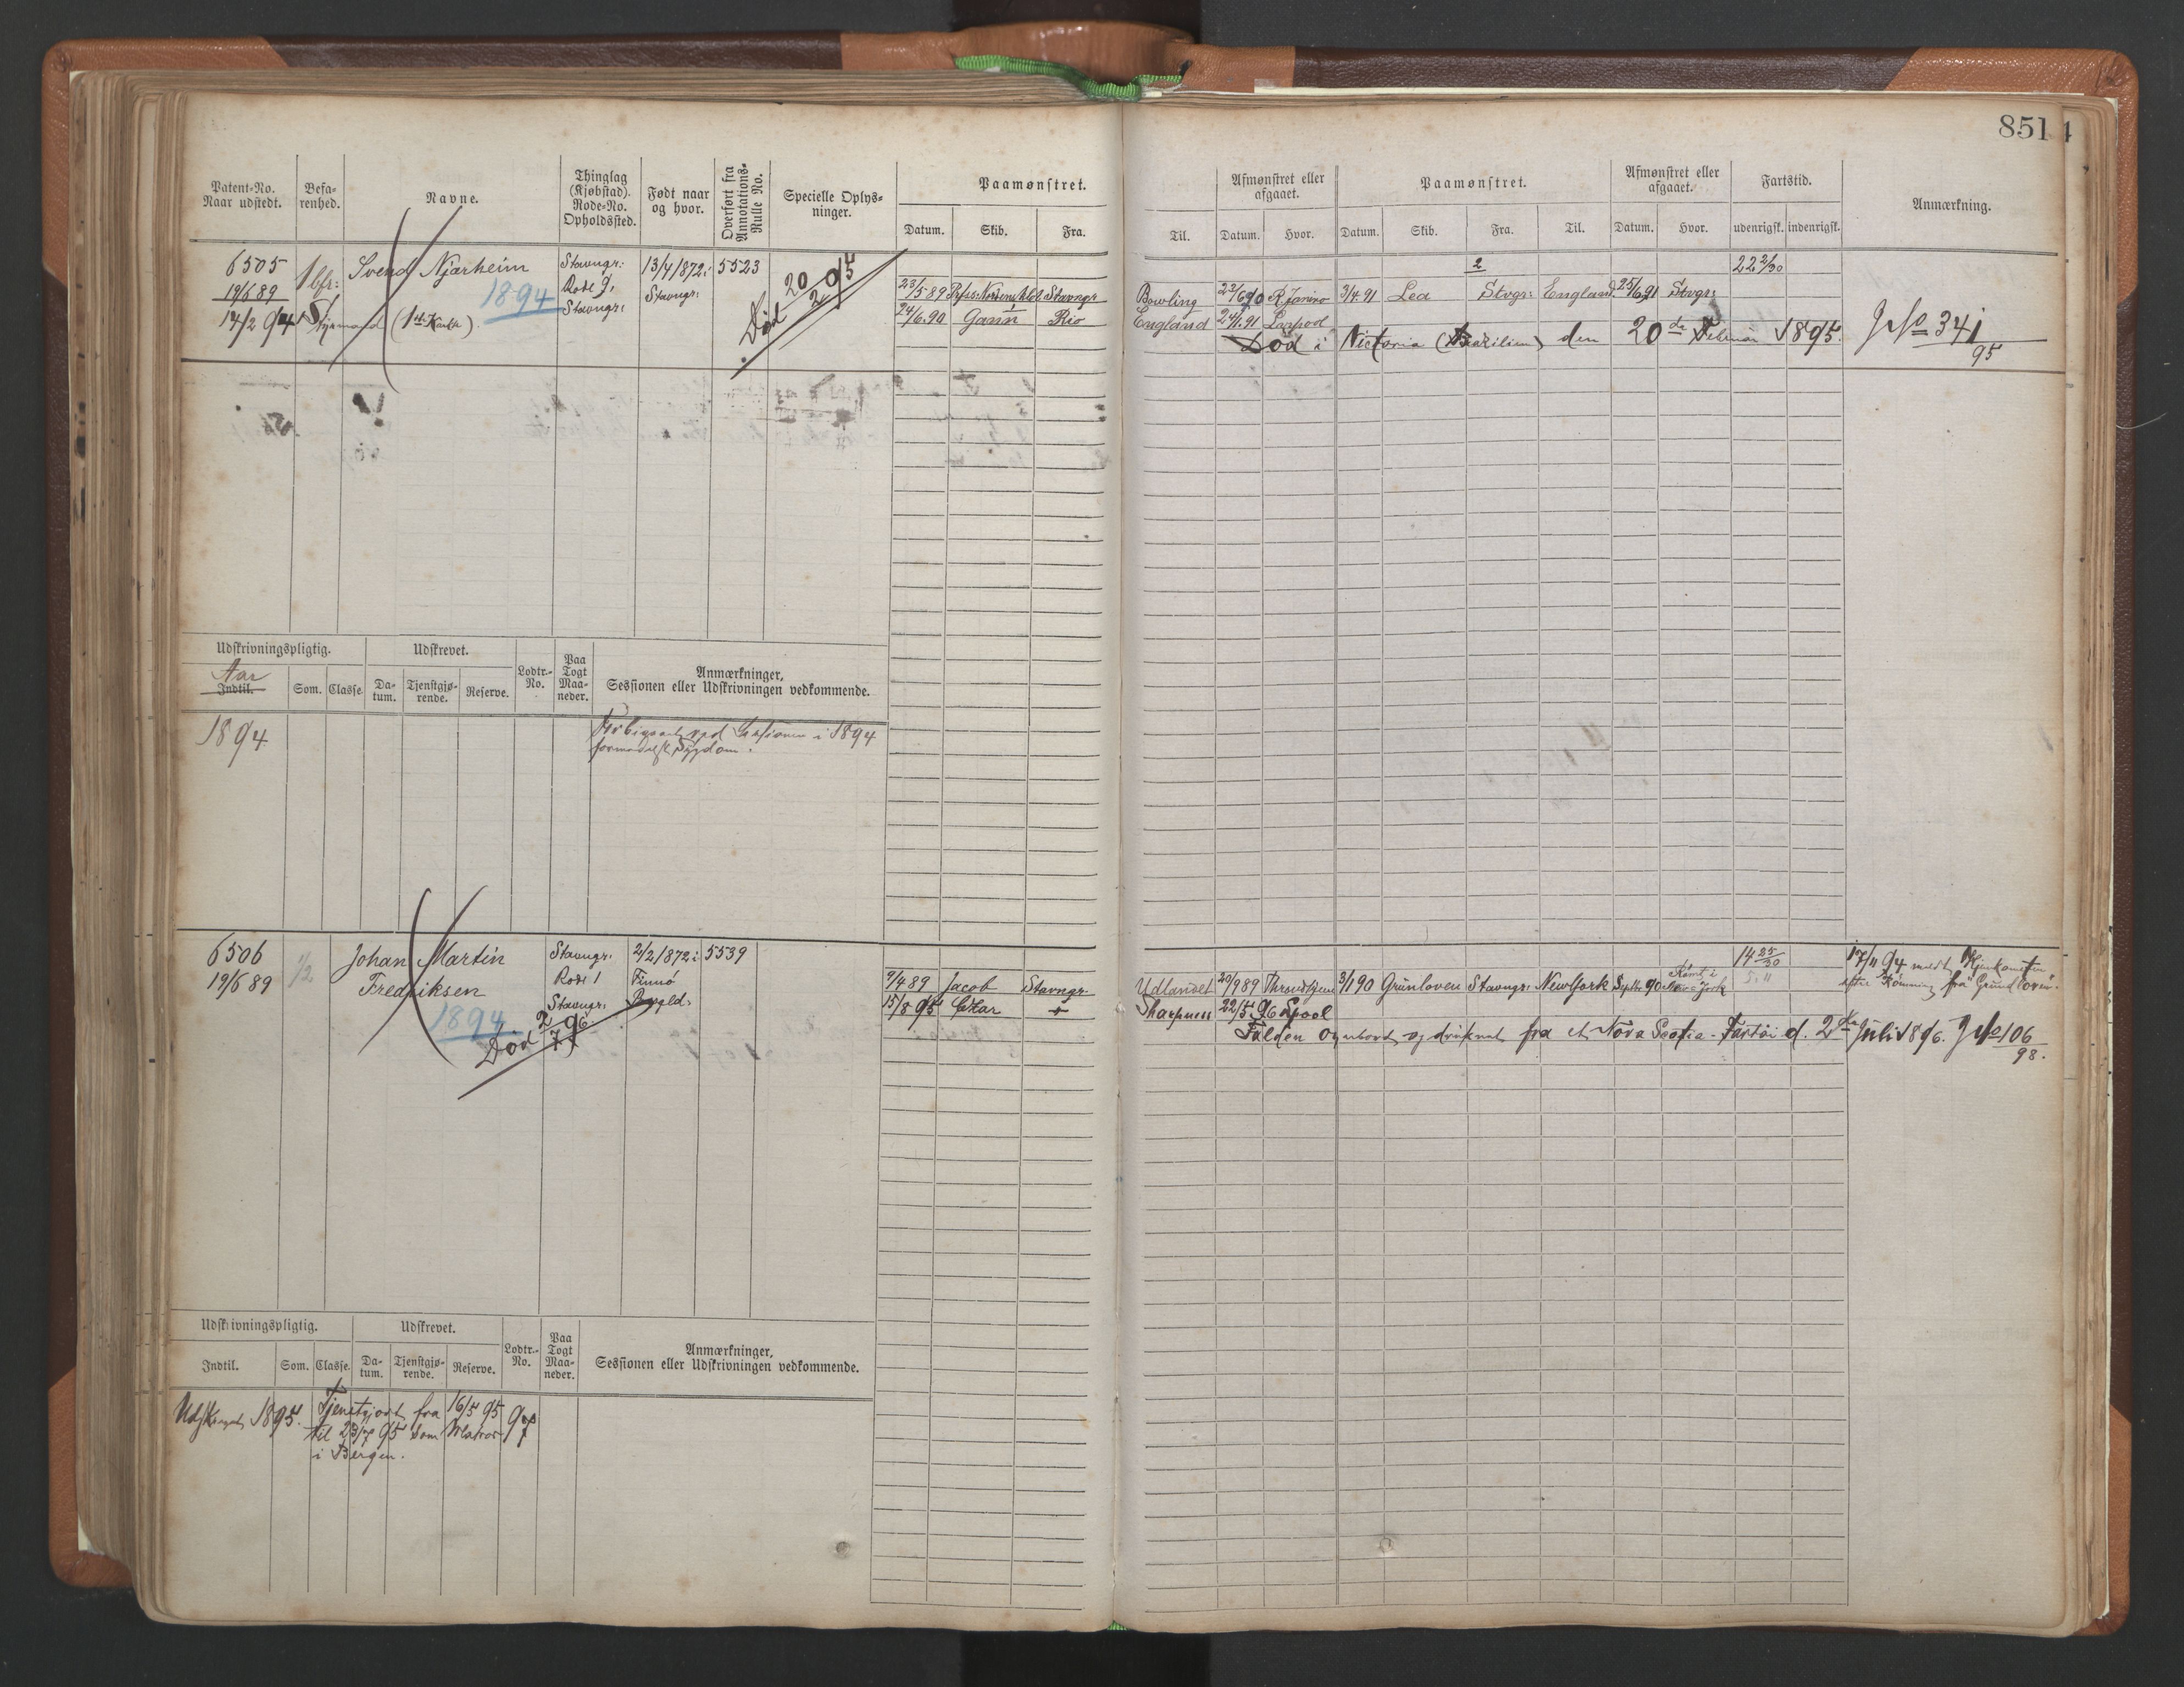 851
Patent-No. Naar udstedt.
Befarenhed.
Navne.
Thinglag (Kjøbstad). Rode-No. Opholdssted.
Født naar og hvor.
Overført fra Annotations-Rulle No.
Specielle Oplysninger.
Paamønstret.
Datum. Skib. Fra.
Til.
Afmønstret eller afgaaet.
Datum. Hvor.
Paamønstret.
Datum. Skib. Fra. Til.
Afmønstret eller afgaaet.
Datum. Hvor.
Fartstid.
udenrigsk. indenrigsk.
Anmærkning.
6505
19/6 89
14/2 94
1 bfr:
Svend Njærheim
1894
Styrmand (1ste Karakt)
Stavngr:
Rode 9,
Stavngr:
13/4 1872 i
Stavngr:
5523
Død 20/2 95
2
22 2/30
23/5 89 Stavngr
Bowling 22/6 90 R Janeiro 3/4 91 Lea Stvgr: England 25/6 91 Stvgr:
24/6.90 Gann Rio
England 24/1.91
Død i Victoria (Brazilien) den 20de Februar 1895.
J No 341/95
Udskrivningspligtig. Udskrevet.
Aar
Indtil. Som. Classe. Datum. Tjenstgjørende. Reserve. Lodtr.-No. Paa Togt Maaneder.
Anmærkninger, Sessionen eller Udskrivningen vedkommende.
1894
Forbigaaet ved Sessionen i 1894
formedelst Sygdom.
6506
19/6 89
1/2
Johan Martin
Fredriksen
1894
Stavngr.
Rode 1
Stavngr:
2/2 1872 i
Finnø
Præstgeld:
5539
Død 2/7 96
14 25/30
5. "
9/4 89 Jacob Stavngr.
Udlandet 20/9 89 3/1 90 Grünloven Stavngr. New York Septbr 90 Rømt i New York
15/8 95 Cæsar +
Sharpness 22/5. 96 Lpool
17/11 94 meldt Hjemkomsten
efter Rømning fra "Grundloven".
Falden overbord og druknet fra et Nova Scotia-Fartøi d. 2den Juli 1896. J No 106/98.
Udskrivningspligtig. Udskrevet.
Indtil. Som. Classe. Datum. Tjenstgjørende. Reserve. Lodtr.-No. Paa Togt Maaneder.
Anmærkninger, Sessionen eller Udskrivningen vedkommende.
Udskrevet 1895.
Tjenstgjort fra 16/5 95
til 23/8 95 som Matros
i Bergen.
97